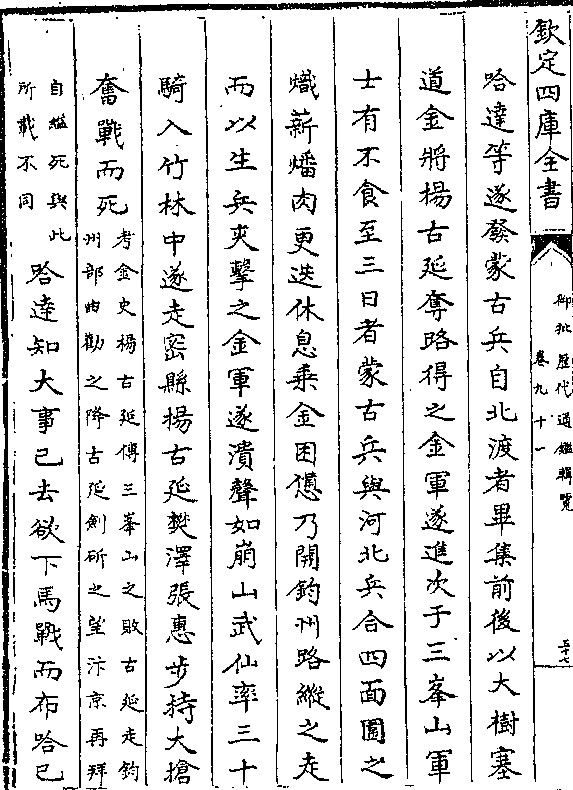 欽定四庫全書
御批歷代通鑑輯覽
卷九十一
哈達等遂發蒙古兵自北渡者畢集前後以大樹塞
道金將楊古延奪路得之金軍遂進次于三峯山軍
士有不食至三日者蒙古兵與河北兵合四面圍之
熾薪燔肉更迭休息乘金困憊乃開鈞州路縱之走
而以生兵夾擊之金軍遂潰聲如崩山武仙率三十
騎入竹林中遂走密縣楊古延樊澤張惠步持大槍
奮戰而死
考金史楊古延傳三峯山之敗古延走鈞
州部曲勸之降古延劍斫之望汴京再拜
自縊死與此
所載不同
哈達知大事已去欲下馬戰而布哈已